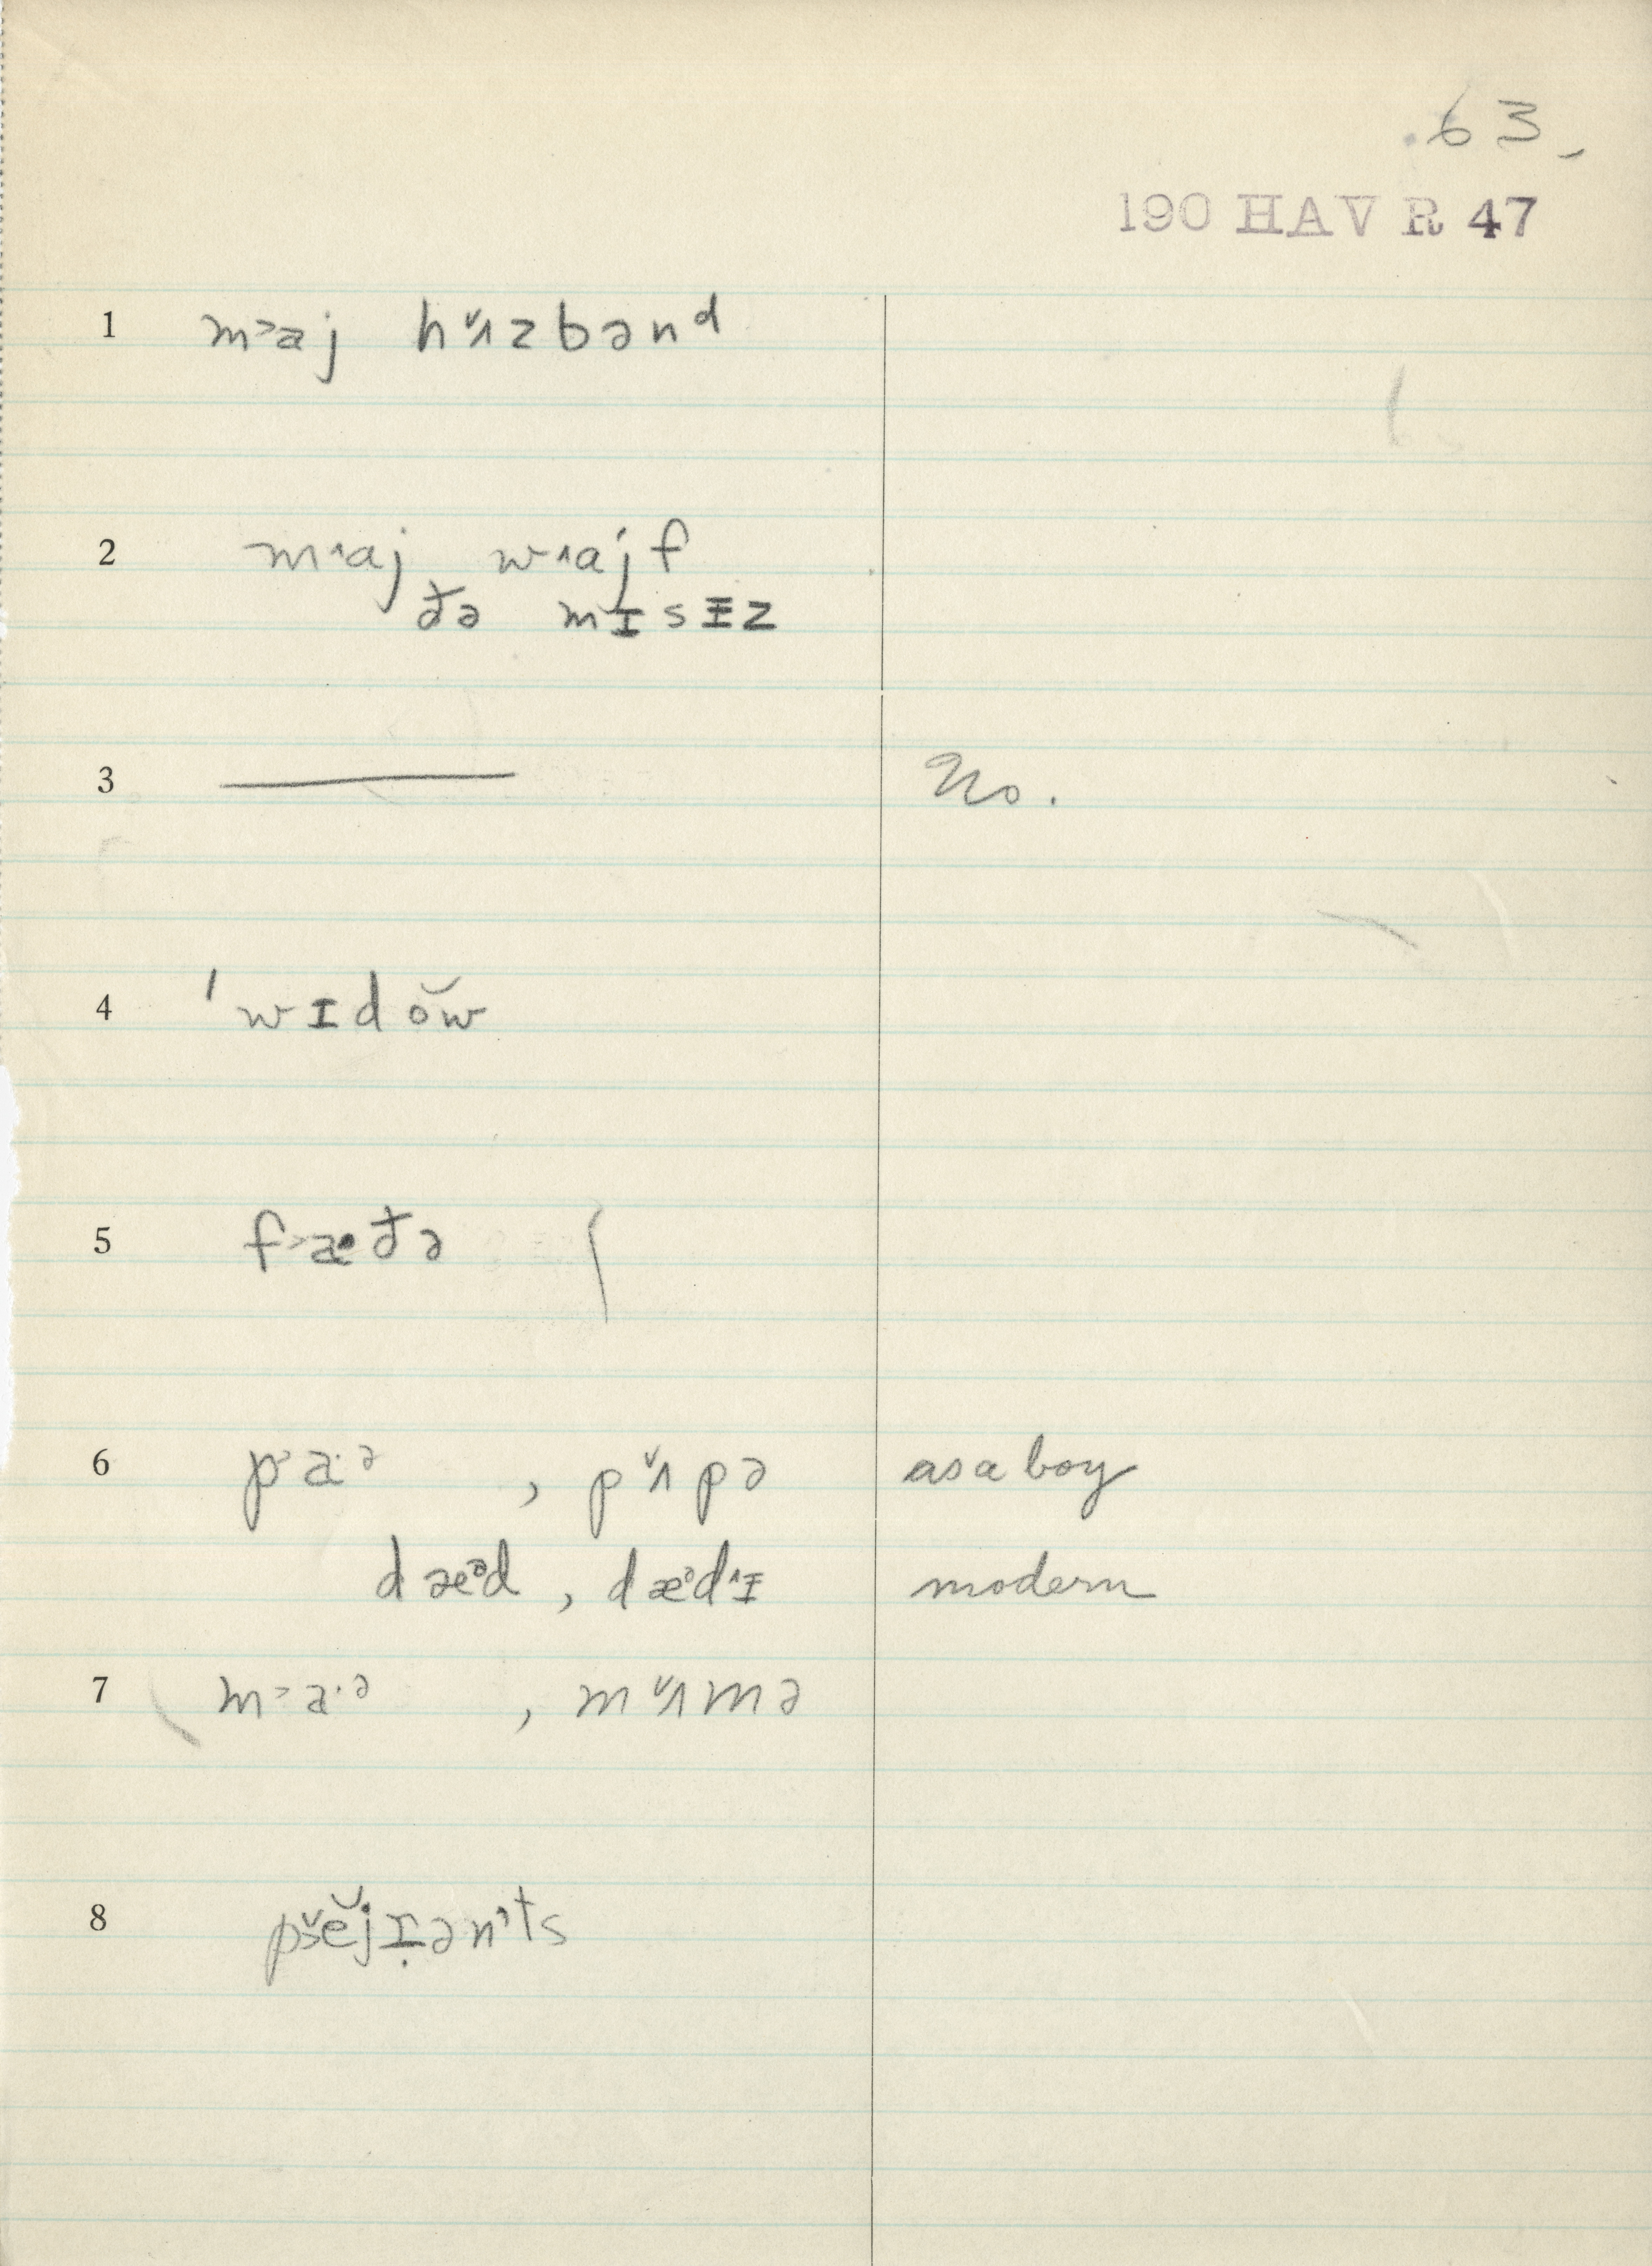 .63.
190 HAV R 47
1 m˃aj hʌ̌zbənᵈ
2 m˄aj w˄ajf
đə mɪsɪ̵z
3 —— No.
4 ˈwɪdŏw
5 f˃æđə
6 p˃aˑᵊ , pʌ̌pə as a boy
dæᵊd , dæᵊd˄ɪ modern
7 m˃aˑᵊ , mʌ̌mə
8 pšĕjɪ̣ən't s